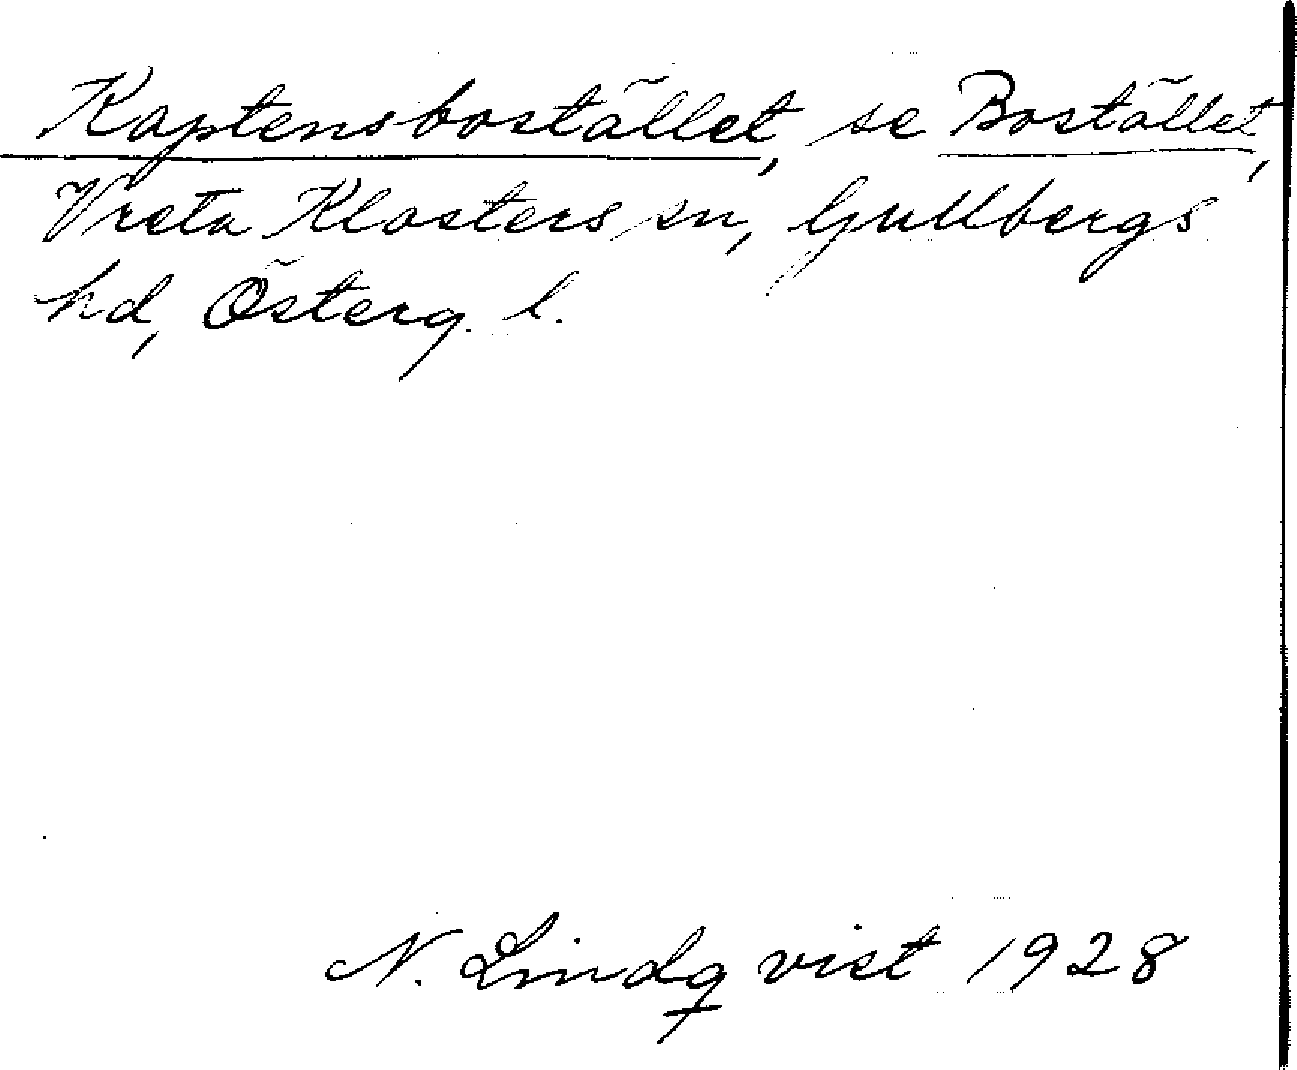 Kaptensbostället, se Bostället,
Vreta Klosters sn, Gullbergs
hd, Österg. l.
N. Lindqvist 1928